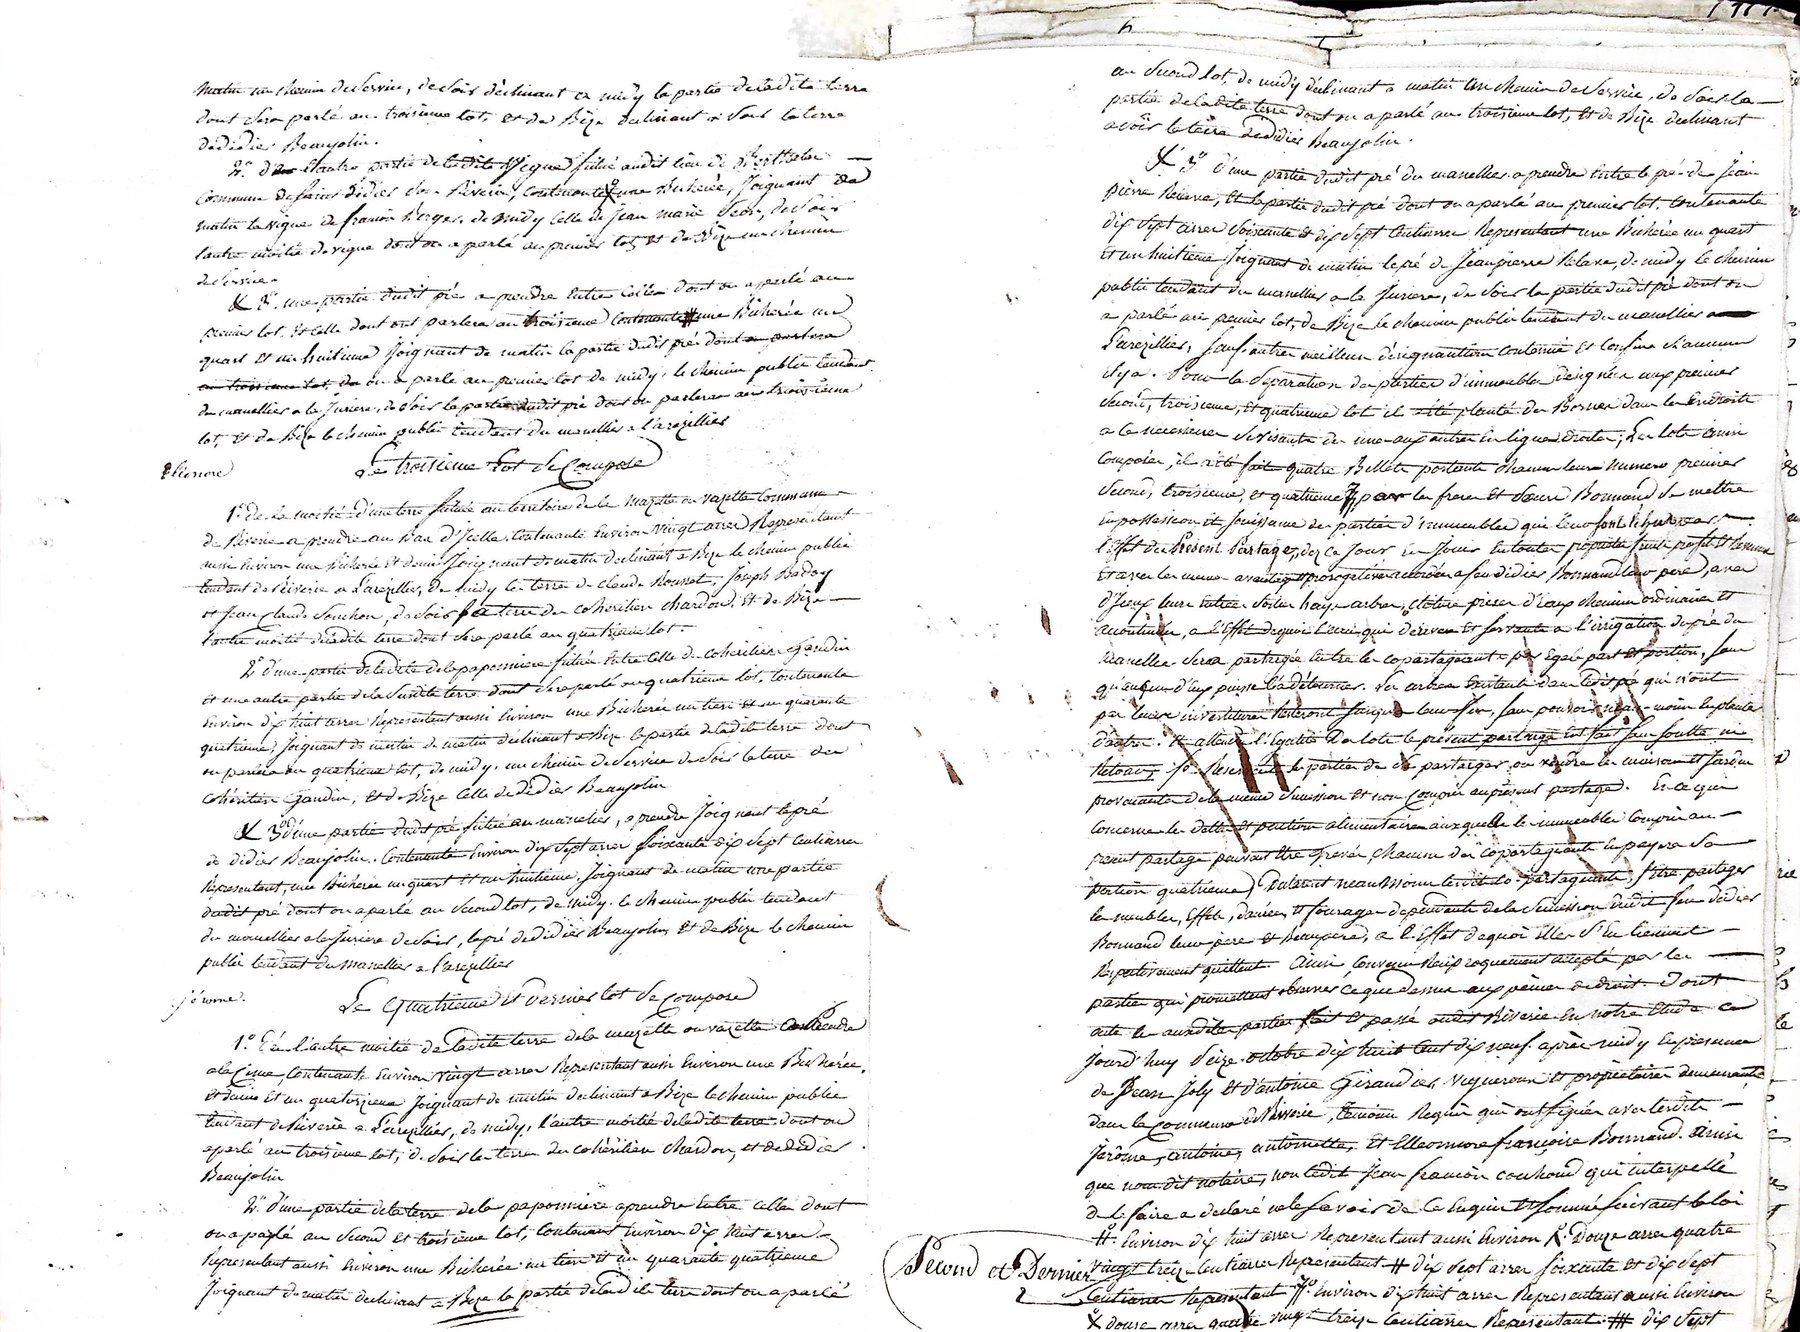 matin un chemin de Service, de soir déclinant a midy la partie de ladite terre
dont sera parlé au troisieme lot, et de Bize declinant a soir la terre
de didier Beaujolin.
2.° d'une autre partie de ladite Vigne située audit lieu de
Commune de Saint didier sous Riverie, contenante une Bicherée, Joignant de
matin la vigne de françois de midy celle de Jean marie de soir
l'autre moitié de vigne dont on a parlé au premier lot, et de Bize un chemin
de Service.
& 3.° une partie dudit pré a prendre entre celle dont on a parlé au
premier lot, et celle dont ont parlera au troisieme contenante # une Bicherée un
quart et un huitieme Joignant de matin la partie dudit pré dont on parlera
au troisieme lot, de on a parlé au premier lot de midy, le chemin public tendant
du manellier a la Juriere, de soir la partie dudit pré dont on parlera au troisieme
lot, et de Bize le chemin public tendant du manellier a Larezillier
Eléonore
Le troisieme Lot Se Compose
1.° de la moitié d'une terre située au territoire de la mazette ou vazette Commune
de Riverie a prendre au Bas d'Icelle, contenante Environ vingt arres Representant
aussi Environ une Bicherée et demie Joignant de matin declinant a Bize le chemin public
tendant de Riverie a Larezillier, de midy les terres de claude Rousset, Joseph Badoy
et Jean Claude Souchon, de soir la terre des cohéritiers chardon, et de Bize
l'autre moitié de ladite terre dont sera parlé au quatrieme lot.
2.° d'une partie de ladite de la paponniere située Entre celle des cohéritiers Gandin
et une autre partie de la susdite terre dont sera parlé au quatrieme lot, contenante
Environ dix huit arres Representant aussi Environ une Bicherée un tiers et un quarante
quatrieme, Joignant de matin de matin declinant a Bize la partie de ladite terre dont
on parlera au quatrieme lot, de midy, un chemin de Service de soir la terre des
cohéritiers Gandin, et de Bize celle de didier Beaujolin
& 3.° d'une partie dudit pré située au manelier, a prendre Joignant le pré
de Didier Beaujolin. Contenante Environ dix sept arres soixante dix sept centiarres
Representant, une Bicherée un quart et un huitieme, Joignant de matin une partie
dudit pré dont on a parlé au Second lot, de midy, le chemin public tendant
du manellier a la Juriere de soir, le pré de didier Beaujolin, et de Bize le chemin
public tendant du manellier a Larezillier
jérome.
Le Quatrieme et dernier lot Se Compose
1.° En l'autre moitié de ladite terre de la mazette ou vazette a prendre
a la Cime, contenante Environ vingt arres Representant aussi Environ une Bicherée,
et demie et un quatorzieme Joignant de matin declinant a Bize le chemin public
tendant de Riverie a Larezillier, de midy, l'autre moitié de ladite terre dont on
a parlé au troisieme lot, de soir les terres des cohéritiers Chardon, et de didier
Beaujolin
2.° d'une partie de la terre de la paponniere a prendre Entre celles dont
on a parlé au Second et troisieme lot, contenant Environ dix huit arres
Representant aussi Environ une Bicherée un tiers et un quarante quatrieme
Joignant de matin declinant a Bize la partie de ladite terre dont on a parlé
au second lot, de midy déclinant a matin un chemin de Service, de soir la
partie de ladite terre dont on a parlé au troisieme lot, et de Bize declinant
a soir la terre de didier Beaujolin.
& 3.° d'une partie dudit pré du manellier a prendre Entre le pré de Jean
pierre et la partie dudit pré dont on a parlé au premier lot, contenante
dix Sept arres Soixante et dix Sept Centiarres Representant une Bicherée un quart
et un huitieme Joignant de matin le pré de Jean pierre de midy le chemin
public tendant du manellier a la Juriere, de soir la partie dudit pré dont on
a parlé au premier lot, de Bize le chemin public tendant du manellier a
Larezillier, Sauf autre meilleure désignation contenue et confins chacun
si y a. Pour la Separation des parties d'immeubles désignées aux premier
second, troisieme, et quatrieme lot il a été planté des Bornes dans les Endroits
a ce necessaires de visante des une aux autres En ligne droite; Les lots ainsi
Composés, il a été fait quatre Billets portants chacun leur Numero premier
Second, troisieme, et quatrieme par les freres et Soeurs Bonnand se mettre
En possession et Jouissance des parties d'immeubles qui leur sont échues par
l'Effet du Présent Partage, dez ce jour En jouir En toute propriété fruits profits et Revenus
et avec les memes avantages et privileges accordés a feu didier Bonnand leur pere, avec
d'Iceux leurs Entrée sortie haye arbres, cloture prises d'eaux chemins ordinaires et
accoutumés, a l'Effet de quoi l'eau qui dérive et servante a l'irrigation du pré du
manellier sera partagée Entre les copartageants par Egale part et portion, sans
qu'aucun d'eux puisse la détourner. Les arbres Existants dans ledit pré qui n'ont
pas leurs investitures resteront jusqu'a leur fin, sans pouvoir néan-moins En planter
d'autres. Et attendu l'Egalité des lots le présent partage Est fait sans soulte ni
Retour, Se Reservent les parties de partager, ou vendre les maisons et Jardin
provenants de la même Succession et non compris au présent partage. En ce qui
concerne les dettes et pensions alimentaires auxquelles les immeubles compris au
présent partage peuvent Etre Grevés, Chacun des copartageants En payera Sa
portion quatrieme, Declarent néanmoins lesdits co-partageants, s'Etre partagés
les meubles, Effets, denrées, et fourages dependants de la Succession dudit feu didier
Bonnand leur pere et Beaupere, a l'Effet de quoi Elles S'En tiennent
Respectivement quittent. Ainsi, convenu Reciproquement accepté par les
parties qui promettent observer ce que dessus aux peines de droit. Dont
acte le susdites parties fait et passé audit Riverie En notre Etude ce
Jourd'huy Seize octobre dix huit cent dix neuf après midy En présence
de Jean Joly et d'antoine Giraudier vignerons et propriétaires demeurants
dans la commune de Riverie, témoins Requis qui ont signés avec lesdits
Jérôme, antoine, antoinette, et Elleonnore françoise Bonnand. Ainsi
que nous dit notaire, non ledit Jean françois couchoud qui interpellé
de le faire a declaré ne le savoir de ce Enquis et sommé suivant la loi
#.° Environ dix huit arres Representant aussi Environ &.° Douze arres quatre
vingt treize Centiarres Representant # dix Sept arres soixante et dix Sept
Centiarres Representant Environ dix huit arres Representant aussi Environ
X douze arres quatre vingt treize Centiarres Representant ## dix Sept
Second et Dernier